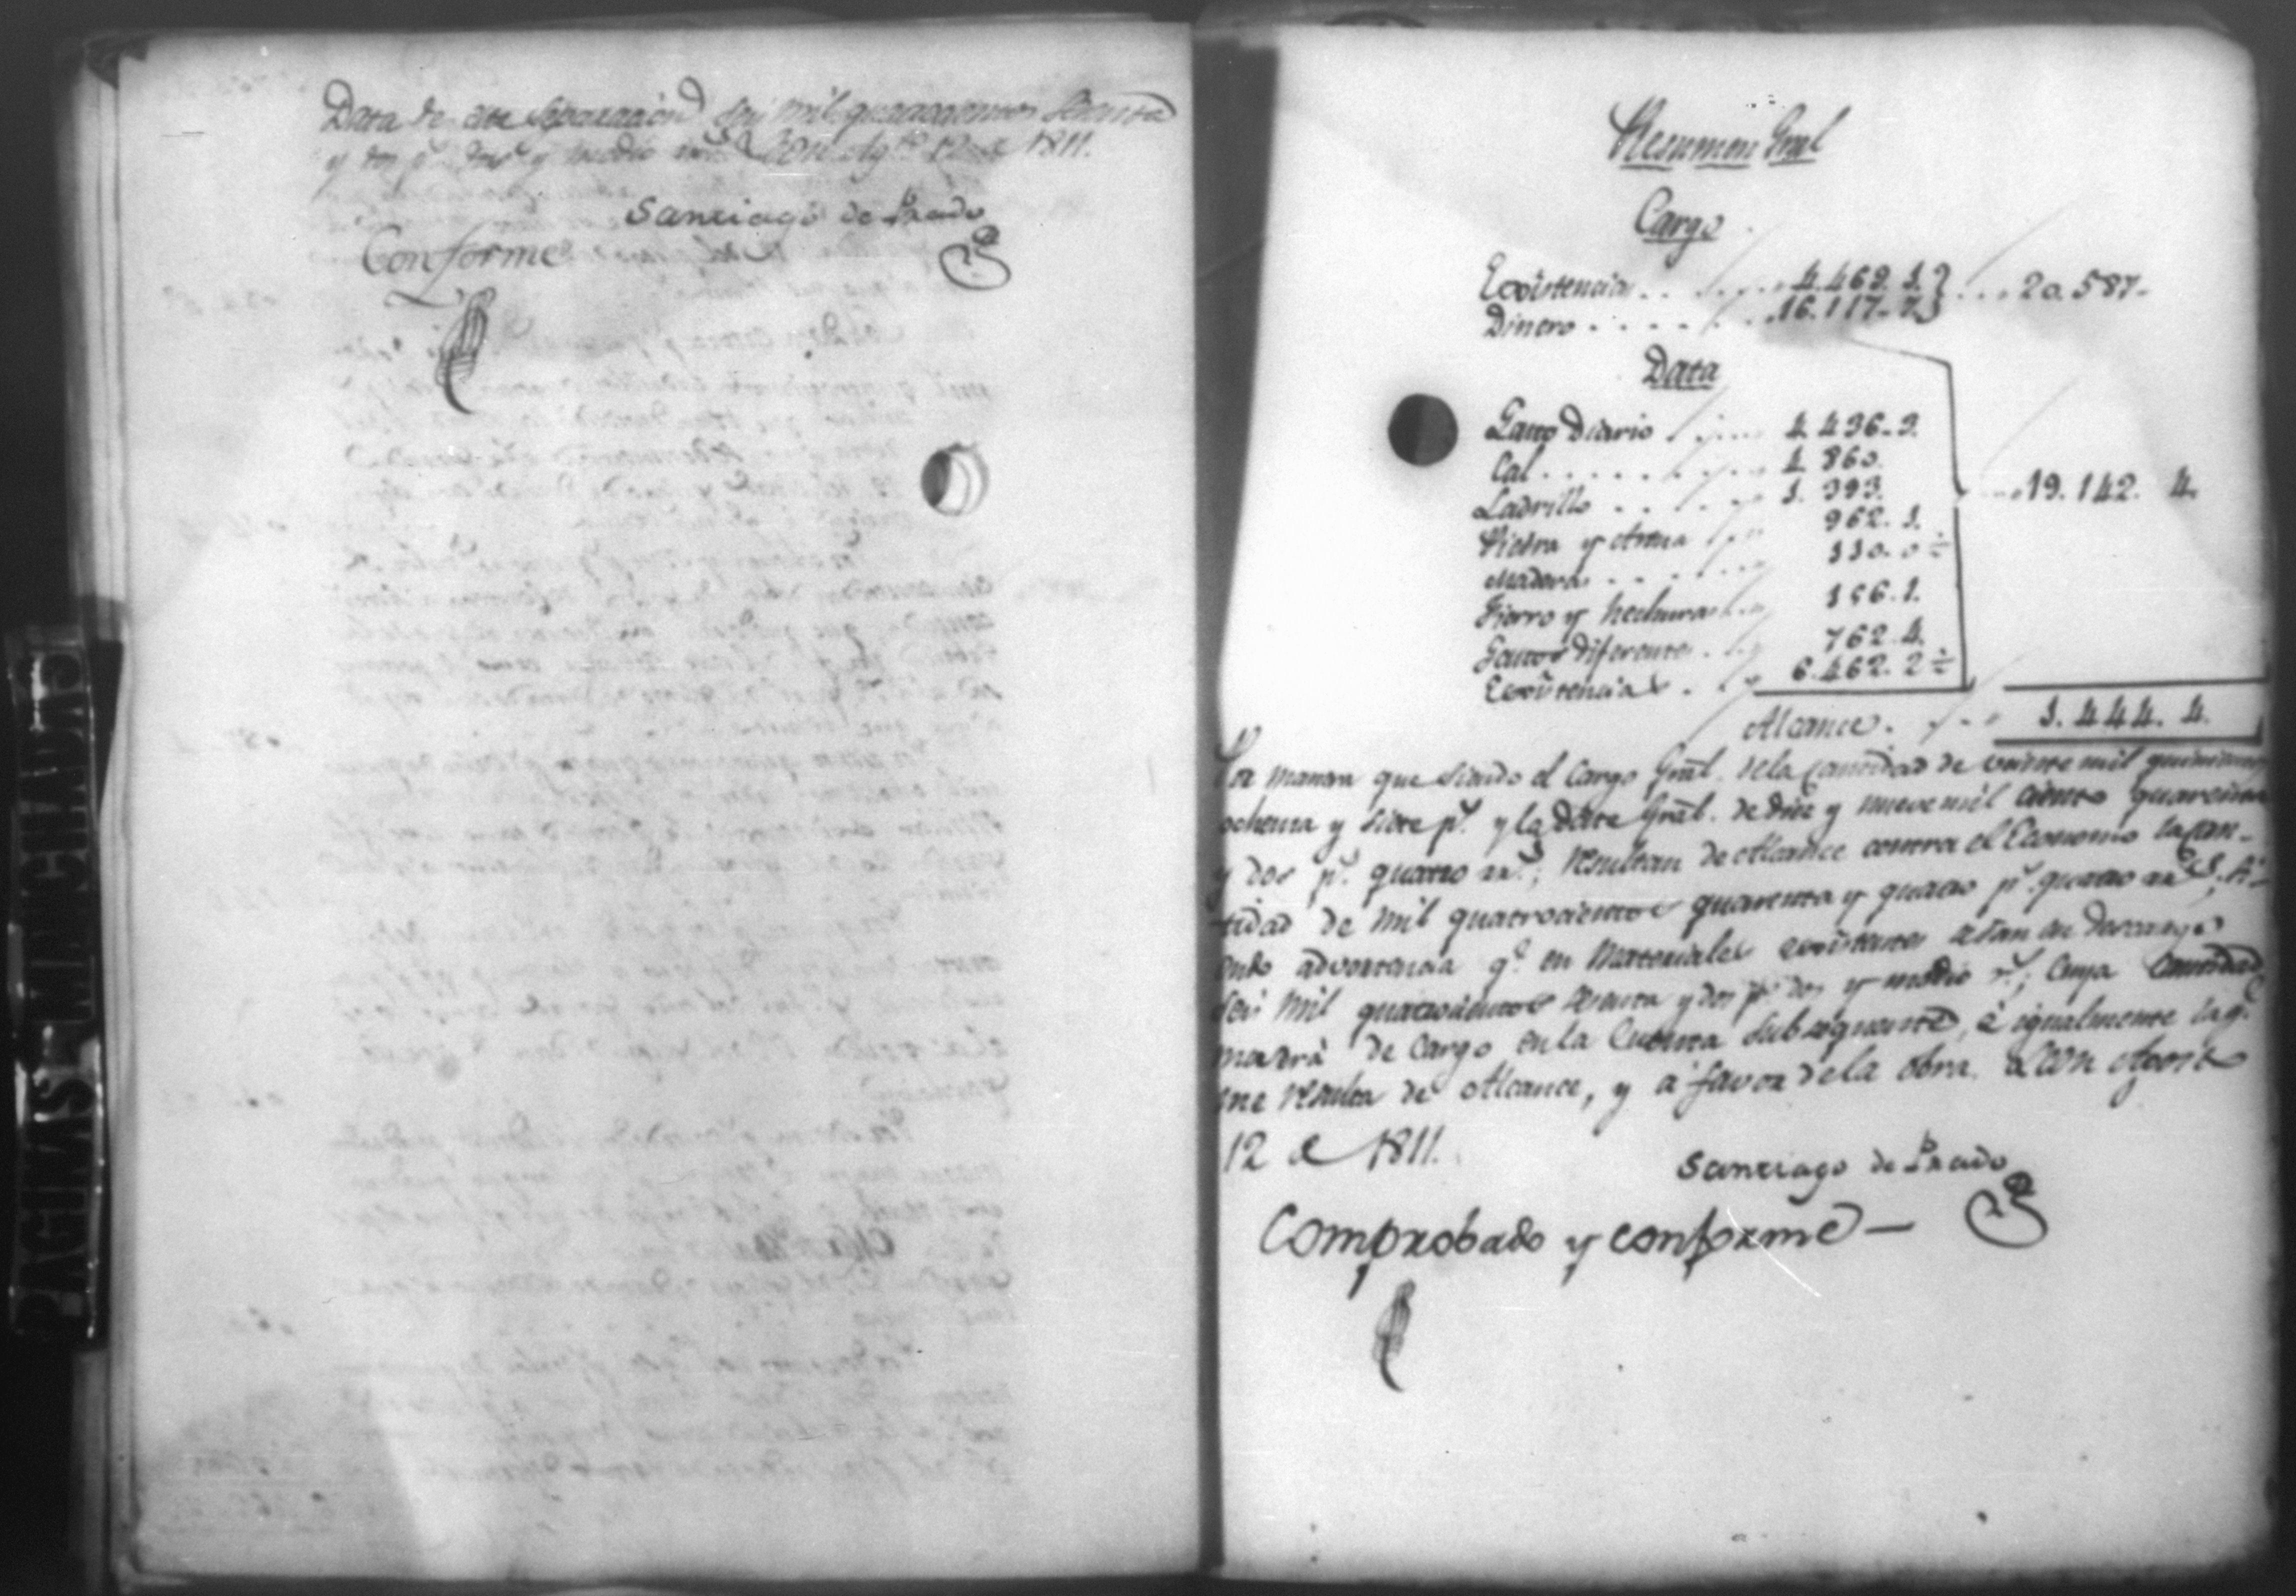 Data de esta separacion seis mil quatrocientos sesenta
y dos p.s dos y medio rr.s Leon Ag.to 12 de 1811.
Santiago de Prado
Conforme
Resumen Gral
Cargo
Existencias . . . . . . . 4.469. 1.
Dinero . . . . . . . 16.117. 7. . . . 20.587-
Data
Gasto Diario . . . . 4 436. 3.
Cal . . . . . . . . 4 860.
Ladrillo . . . . . 1. 393.
Piedra y Arena . . . 962. 1.
Madera . . . . . . 110. 0 ÷
Fierro y hechuras . . . 156. 1.
Gastos diferentes . . . 762. 4.
Existencias . . . 6.462. 2 ÷
. . . 19. 142. 4.
Alcance . . . 1. 444. 4.
Por manera que siendo el Cargo Gral. de la Cantidad de veinte mil quinientos
ochenta y siete p.s y la Data Gral. de diez y nueve mil ciento quarenta
y dos p.s quatro rr.s; resultan de Alcance contra el Economo la can-
tidad de mil quatrocientos quarenta y quatro p.s quatro rr.s;
endo advertencia q.e en Materiales existentes estan en Descargo
seis mil quatrocientos sesenta y dos p.s dos y medio r.s; cuya Cantidad
de Cargo en la Cuenta subsequente, é igualmente la q.e
resulta de Alcance, y á favor de la obra. Leon Agosto
12 de 1811.
Santiago de Prado
Comprobado y conforme -
PAGINAS MANCHADAS